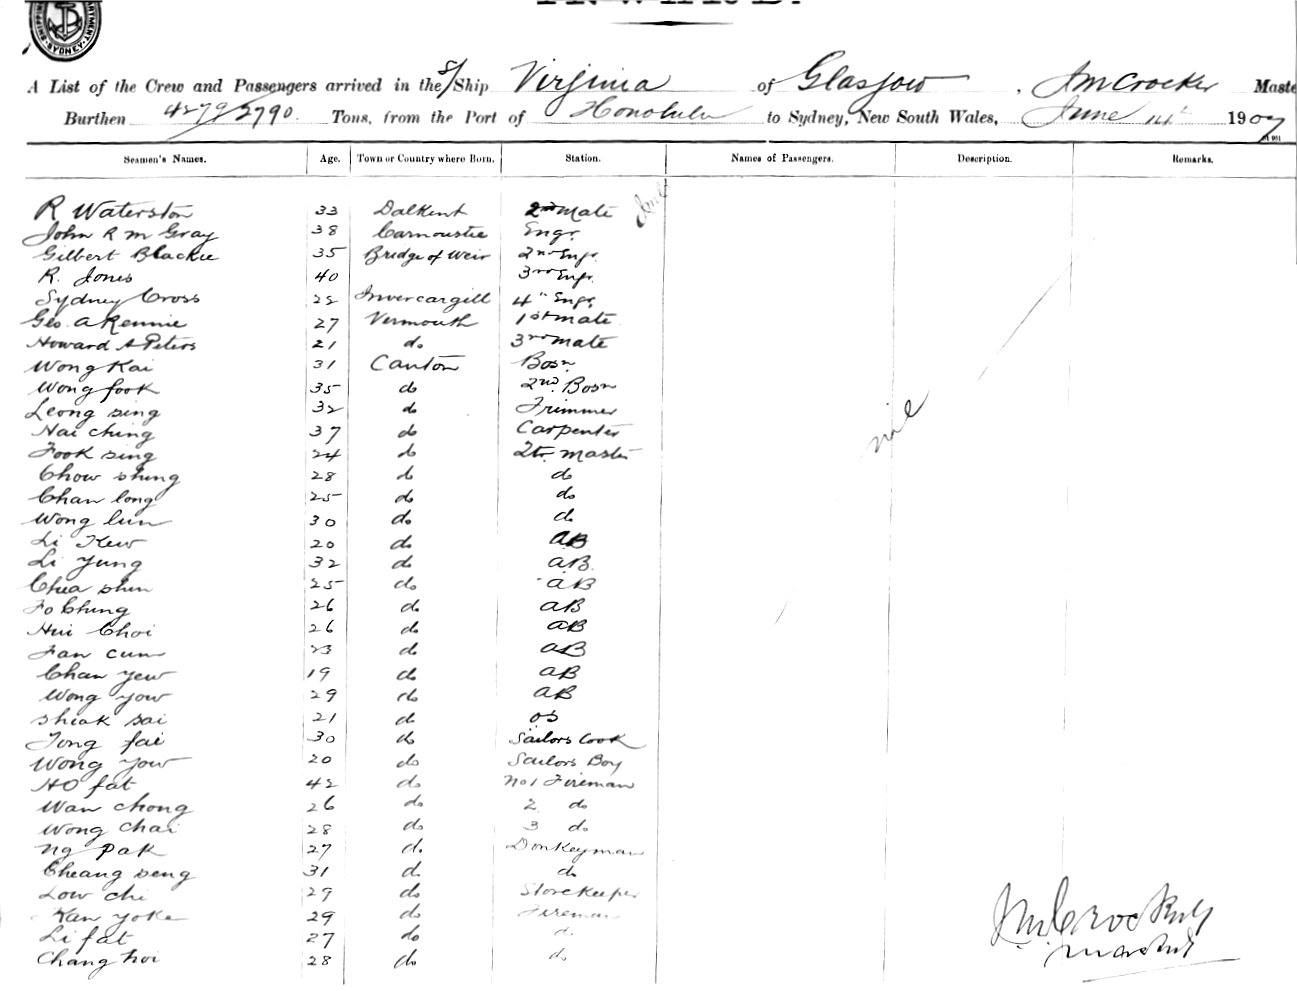 SYDNEY
A List of the Crew and Passengers arrived in the S/Ship Virginia of Glasgow, J M Crocker Maste
Burthen 4279/2790 Tons, from the Port of Honolulu to Sydney, New South Wales, June 14th 1907
Seamen's Names. Age. Town or Country where Born. Station. Names of Passengers. Description. Remarks.
R Waterston 33 Dalkent 2nd Mate
John R M Gray 38 Carnoustie Engr.
Gilbert Blackie 35 Bridge of Weir 2nd Engr.
R. Jones 40 3rd Engr.
Sydney Cross 22 Invercargill 4th Engr.
Geo. A Rennie 27 Vermouth 1st mate
Howard A Peters 21 do 3rd mate
Wong Kai 31 Canton Bosn.
Wong fook 35 do 2nd Bosn
Leong sing 32 do Trimmer
Nai Ching 37 do Carpenter
Fook sing 24 do Qtr. master
Chow shing 28 do do
Chan long 25 do do
Wong lun 30 do do
Li Kew 20 do AB
Li Yung 32 do AB.
Chea shun 25 do AB
Fo Ching 26 do AB
Hui Choi 26 do AB
Fan cum 23 do AB
Chan yew 19 do AB
Wong yow 29 do AB
Shiak sai 21 do OS
Tong fai 30 do Sailors Cook
Wong yow 20 do Sailors Boy
Ho fat 42 do No 1 Fireman
Wan chong 26 do 2 do
Wong chai 28 do 3 do
Ng pak 27 do Donkeyman
Cheang seng 31 do do
Low chi 29 do Storekeeper
Kan yoke 29 do Fireman
Li fat 27 do do
Chang hoi 28 do do
nil
J M Crocker
Master